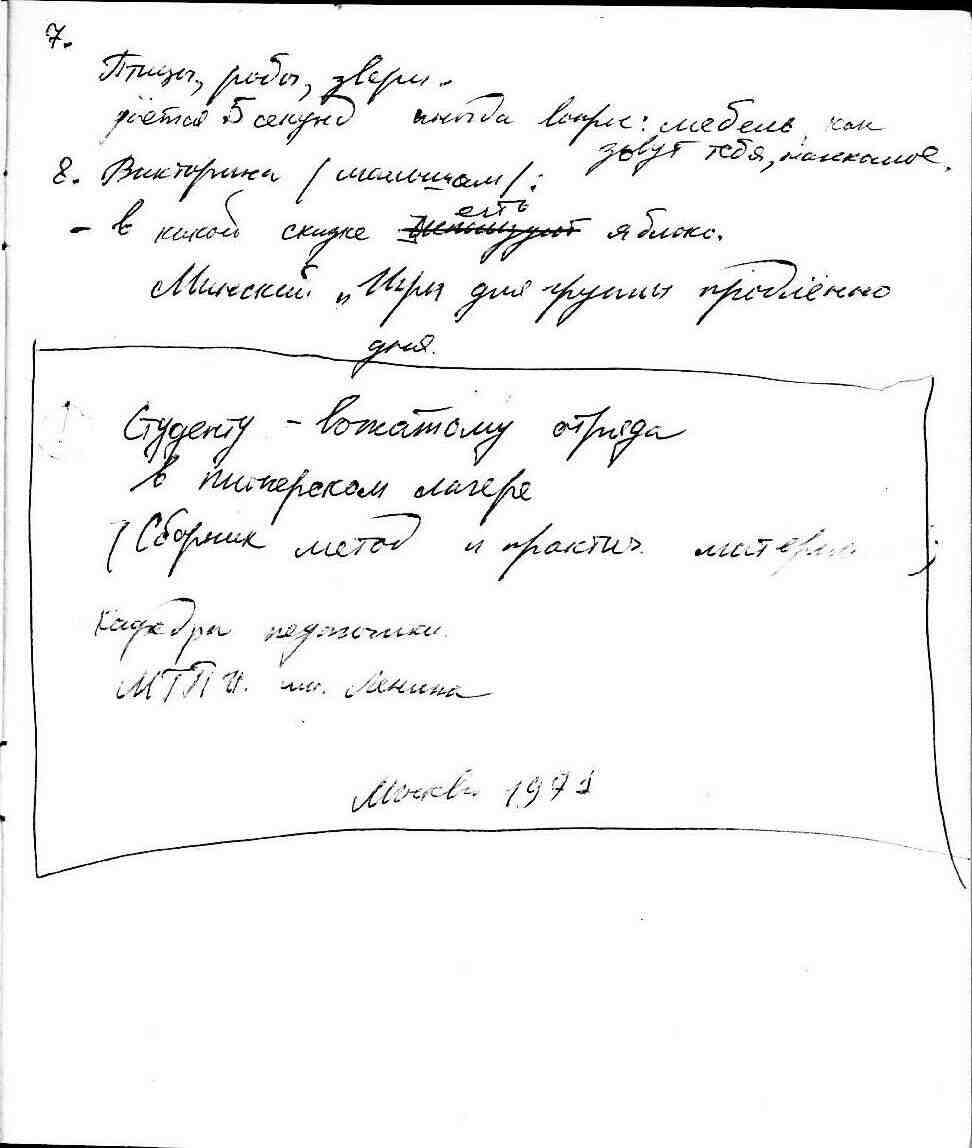 7.
Птицы, рыбы, звери.
даётся 5 секунд иногда вопрс: мебель, как
зовут тебя, насекомое.
8. Викторина /малышам/:
есть
- в какой сказке яблоко.
Минский „Игры для группы продлённого
дня.
Студенту - вожатому отряда
в пионерском лагере
(Сборник метод и практич. матери )
Кафедры педагогики.
МГПИ. им. Ленина
Москва 1971